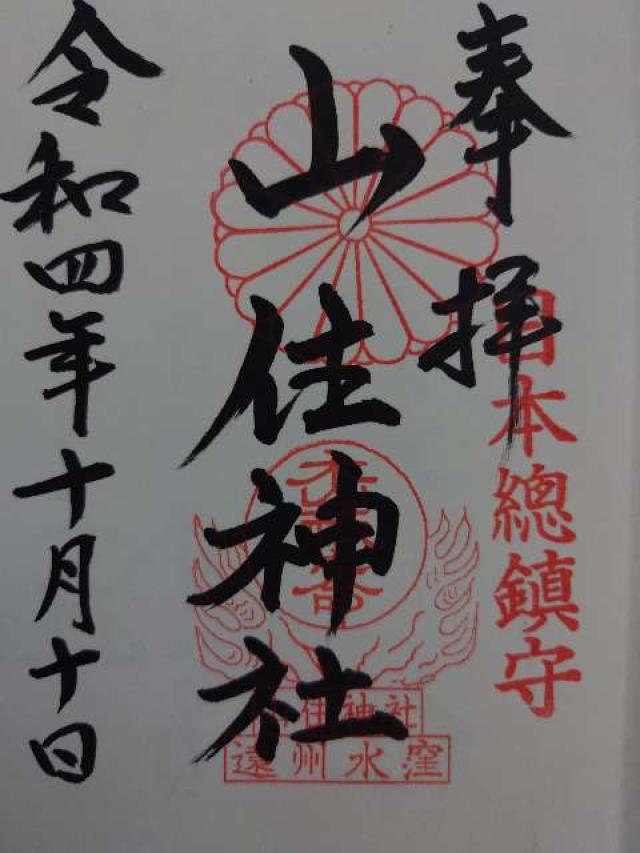 奉拝
日本總鎮守
山住神社
山住神社
遠州水窪
令和四年十月十日